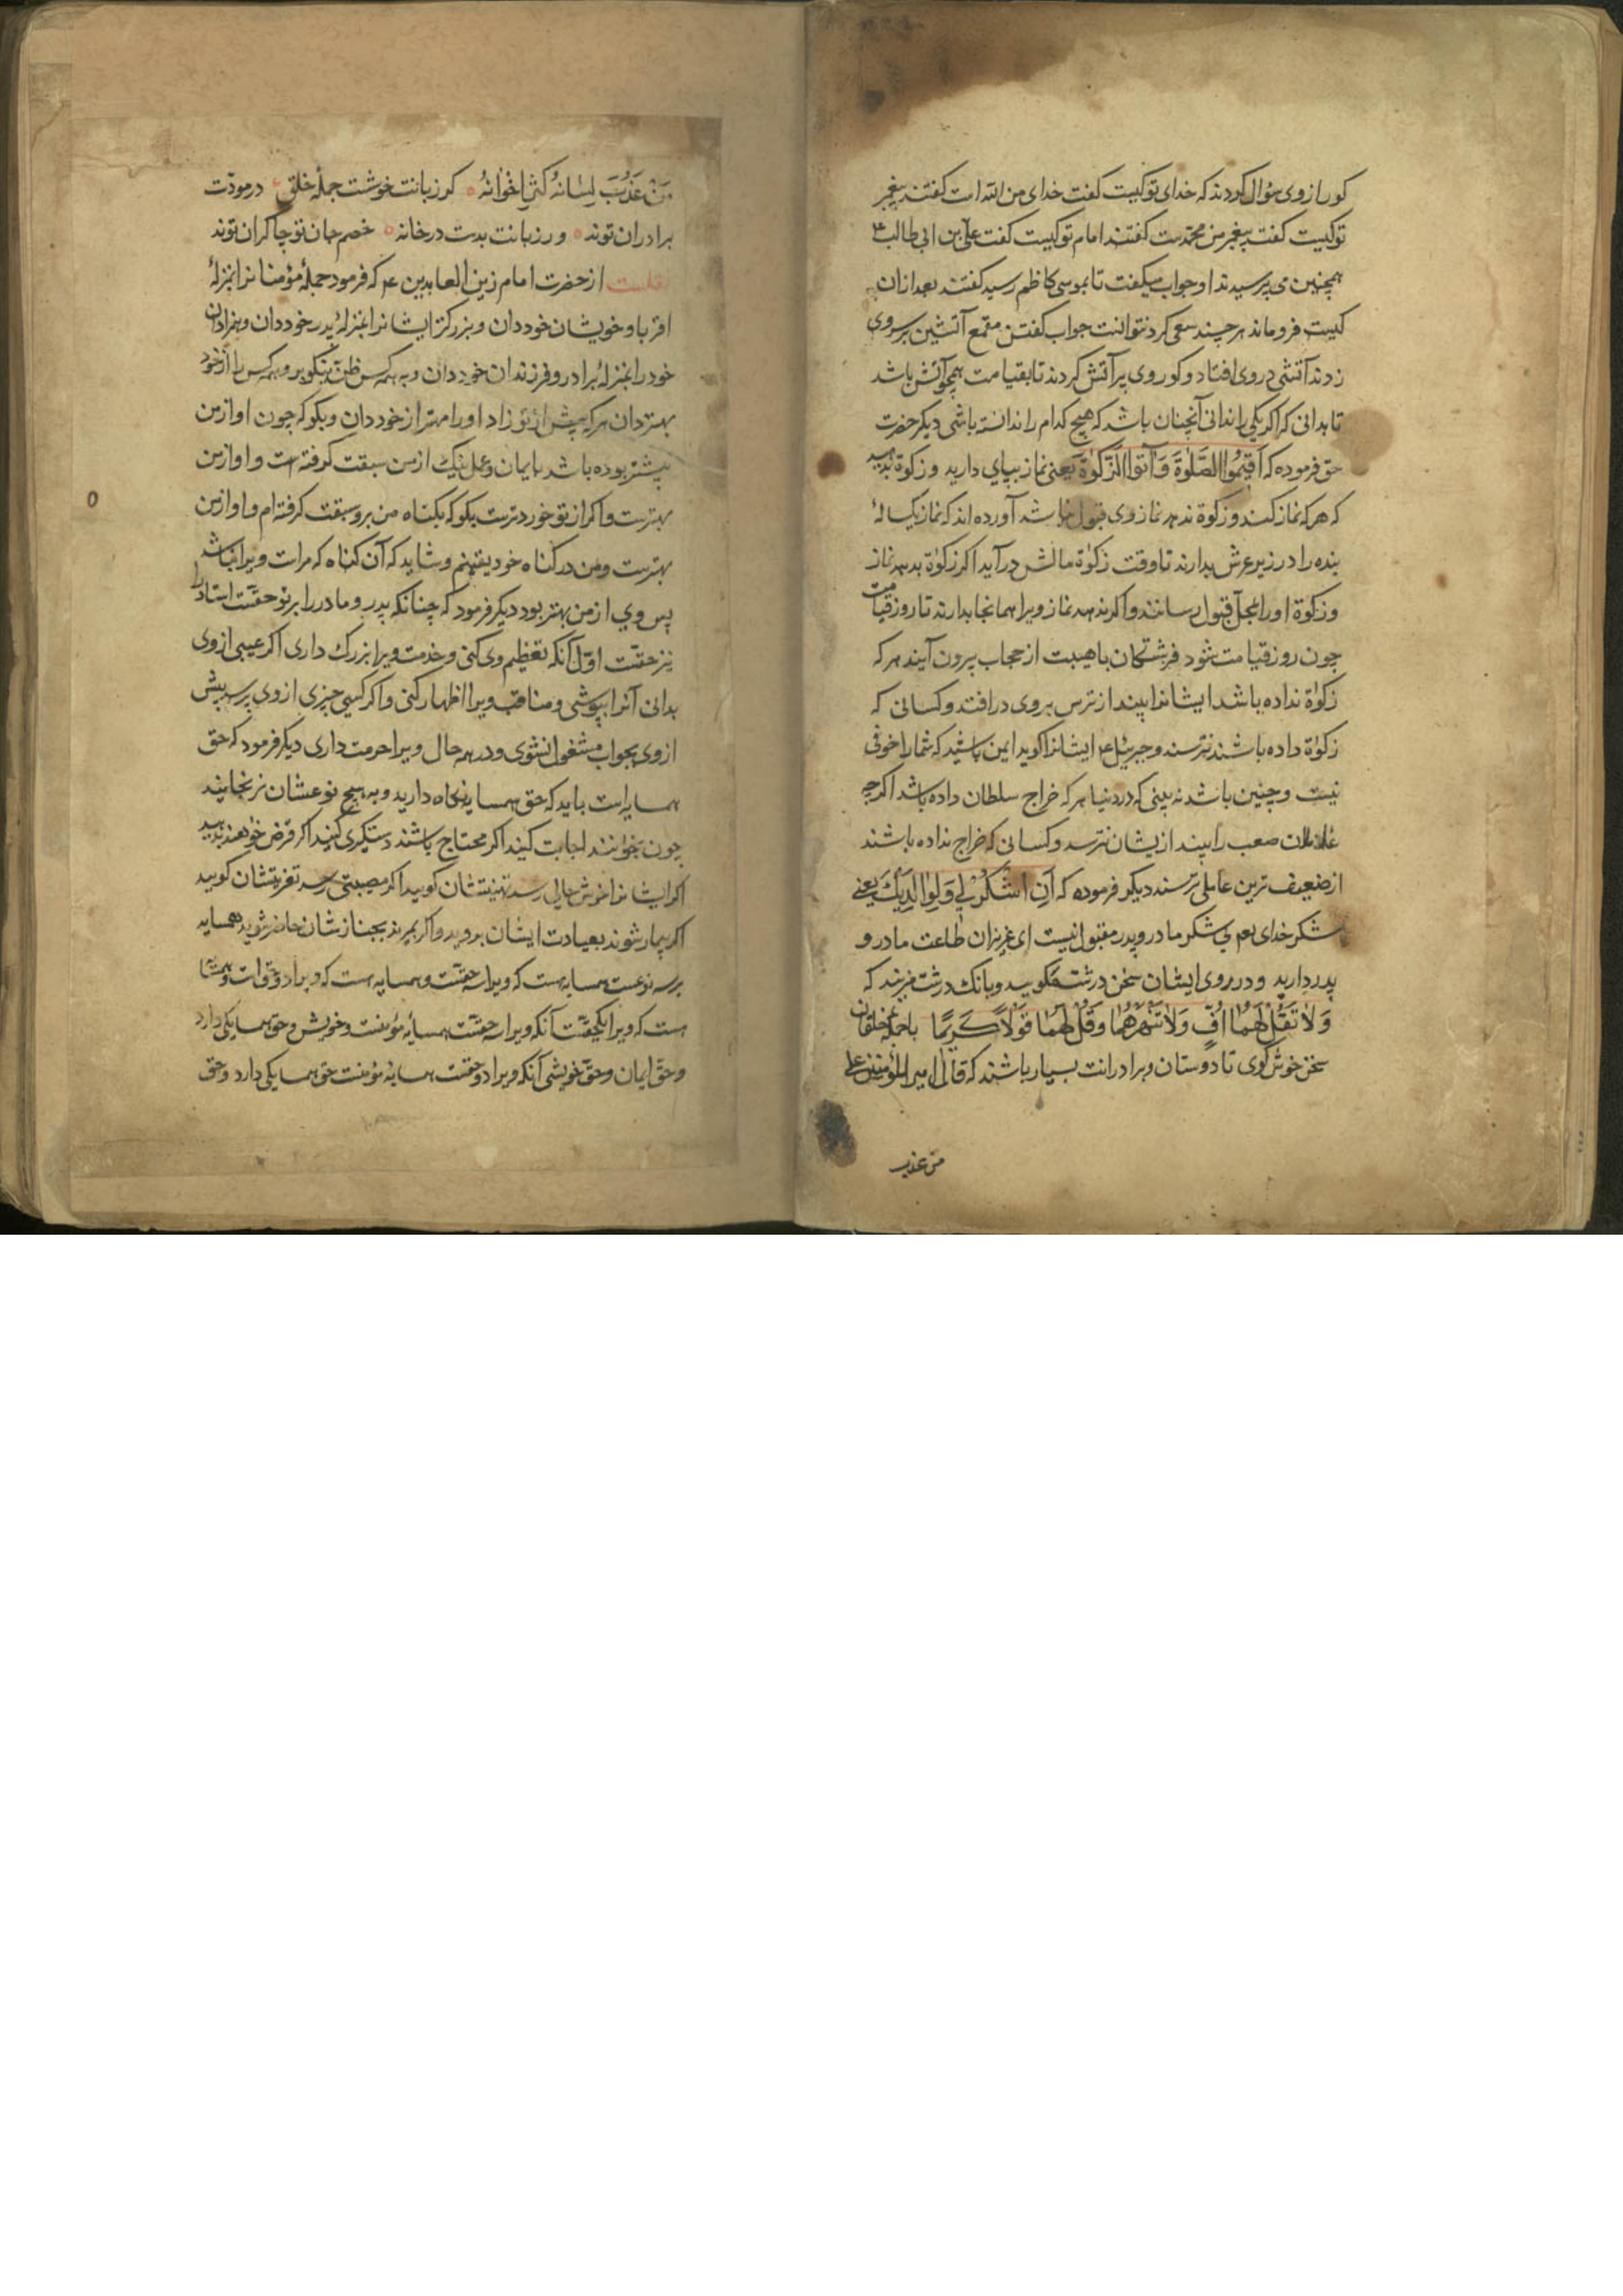 کور ازوی سؤال کردند که خدای تو کیست کفت خدای من الله است کفتند پیغمبر
تو کیست کفت پیغمبر من محمدست کفتند امام تو کیست کفت علی بن ابی طالب ع
همچنین می پرسیدند او جواب میکفت تا بموسی کاظم رسید کفتند بعد ازان
کیست فرو ماند هر چند سعی کرد نتوانست جواب کفتن مقمع آتشین بر سر وی
زدند آتشی در وی افتاد و کور وی پر آتش کردند تا بقیامت همچو آتش باشد
تا بدانی که اکر یکی را ندانی آنچنان باشد که هیچ کدام را ندانسته باشی دیکر حضرت
حق فرموده که اَقیمُوا الصَّلوٰةَ وَآتوا الزَّکوٰةَ یعنی نماز بپای دارید و زکوة بدهید
که هر که نماز کند و زکوة ندهد نماز وی قبول نباشد آورده اند که نماز یکساله
بنده را در زیر عرش بدارند تا وقت زکوٰة مالش در آید اکر زکوٰة بدهد نماز
و زکوة او را بمحل قبول رسانند و اکر ندهد نماز ویرا همانجا بدارند تا روز قیامت
چون روز قیامت شود فرشتکان باهیبت از حجاب بیرون آیند هر که
زکوٰة نداده باشد ایشانرا بیند از ترس بروی در افتد و کسانی که
زکوٰة داده باشند نترسند و جبرئیل ع ایشانرا کوید ایمن باشید که شما را خوفی
نیست و چنین باشد نه بینی که در دنیا هر که خراج سلطان داده باشد اکرچه
عاملان صعب را بیند ازیشان نترسد و کسانی که خراج نداده باشند
از ضعیف ترین عاملی ترسند دیکر فرموده که اَنِ اشْکُرْ لِی وَلِوالِدَیْکَ یعنی
شکر خدای بی شکر مادر و پدر مقبول نیست ای عزیزان طاعت مادر و
پدر دارید و در روی ایشان سخن درشت مکویید و بانک درشت مزنید که
وَلاٰ تَقُلْ لَهُمٰا اُفٍّ وَلاٰ تَنْهَرْهُمٰا وَقُلْ لَهُمٰا قَوْلاً کَریمًا با جمله خلقان
سخن خوش کوی تا دوستان و برادرانت بسیار باشند که قال امیر المؤمنین علی
من عذب
مَنْ عَذُبَ لِسٰانُهُ کَثُرَ اِخْوٰانُهُ کر زبانت خوشست جملهٔ خلق در مودّت
برادران توند ور زبانت بدست در خانه خصم جان تو چاکران توند
نقلست از حضرت امام زین العابدین ع که فرمود جملهٔ مؤمنانرا بمنزلهٔ
اقربا و خویشان خود دان و بزرکتر ایشانرا بمنزلهٔ پدر خود دان و همزادان
خود را بمنزلهٔ برادر و فرزندان خود دان و به همه کس ظنّ نیکو بر و همه کس را از خود
بهتر دان هر که پیش از تو زاد او را مهتر از خود دان و بکو که چون او از من
پیشتر بوده باشد بایمان و عمل نیک از من سبقت کرفته است و او از من
بهترست و اکر از تو خوردترست بکو که بکناه من برو سبقت کرفته ام و او از من
بهترست و من در کناه خود یقینم و شاید که آن کناه که مراست ویرا نباشد
پس وی از من بهتر بود دیکر فرمود که چنانکه پدر و مادر را بر تو حقّست استاد را
نیز حقّست اوّل آنکه تعظیم وی کنی و خدمت ویرا بزرک داری اکر عیبی ازوی
بدانی آنرا بپوشی و مناقب ویرا اظهار کنی و اکر کسی چیزی ازوی پرسد پیش
ازوی بجواب مشغول نشوی و در همه حال ویرا حرمت داری دیکر فرمود که حق
همسایه است باید که حق همسایه نکاه دارید و به هیچ نوعشان نرنجانید
چون بخوانند اجابت کنید اکر محتاج باشند دستکیری کنید اکر قرض خواهند بدهید
اکر ایشانرا خوش حالی رسد تهنیتشان کویید اکر مصیبتی رسد تعزیتشان کویید
اکر بیمار شوند بعیادت ایشان بروید و اکر بمیرند بجنازشان حاضر شوید همسایه
بر سه نوعست همسایه هست که ویرا سه حقّست و همسایه هست که ویرا دو حق است و همسایه
هست که ویرا یکحقّست آنکه ویرا سه حقّست همسایهٔ مؤمنست و خویش و حق همسایکی دارد
و حق ایمان و حقّ خویشی آنکه ویرا دو حقّست همسایهٔ مؤمنست حق همسایکی دارد و حق